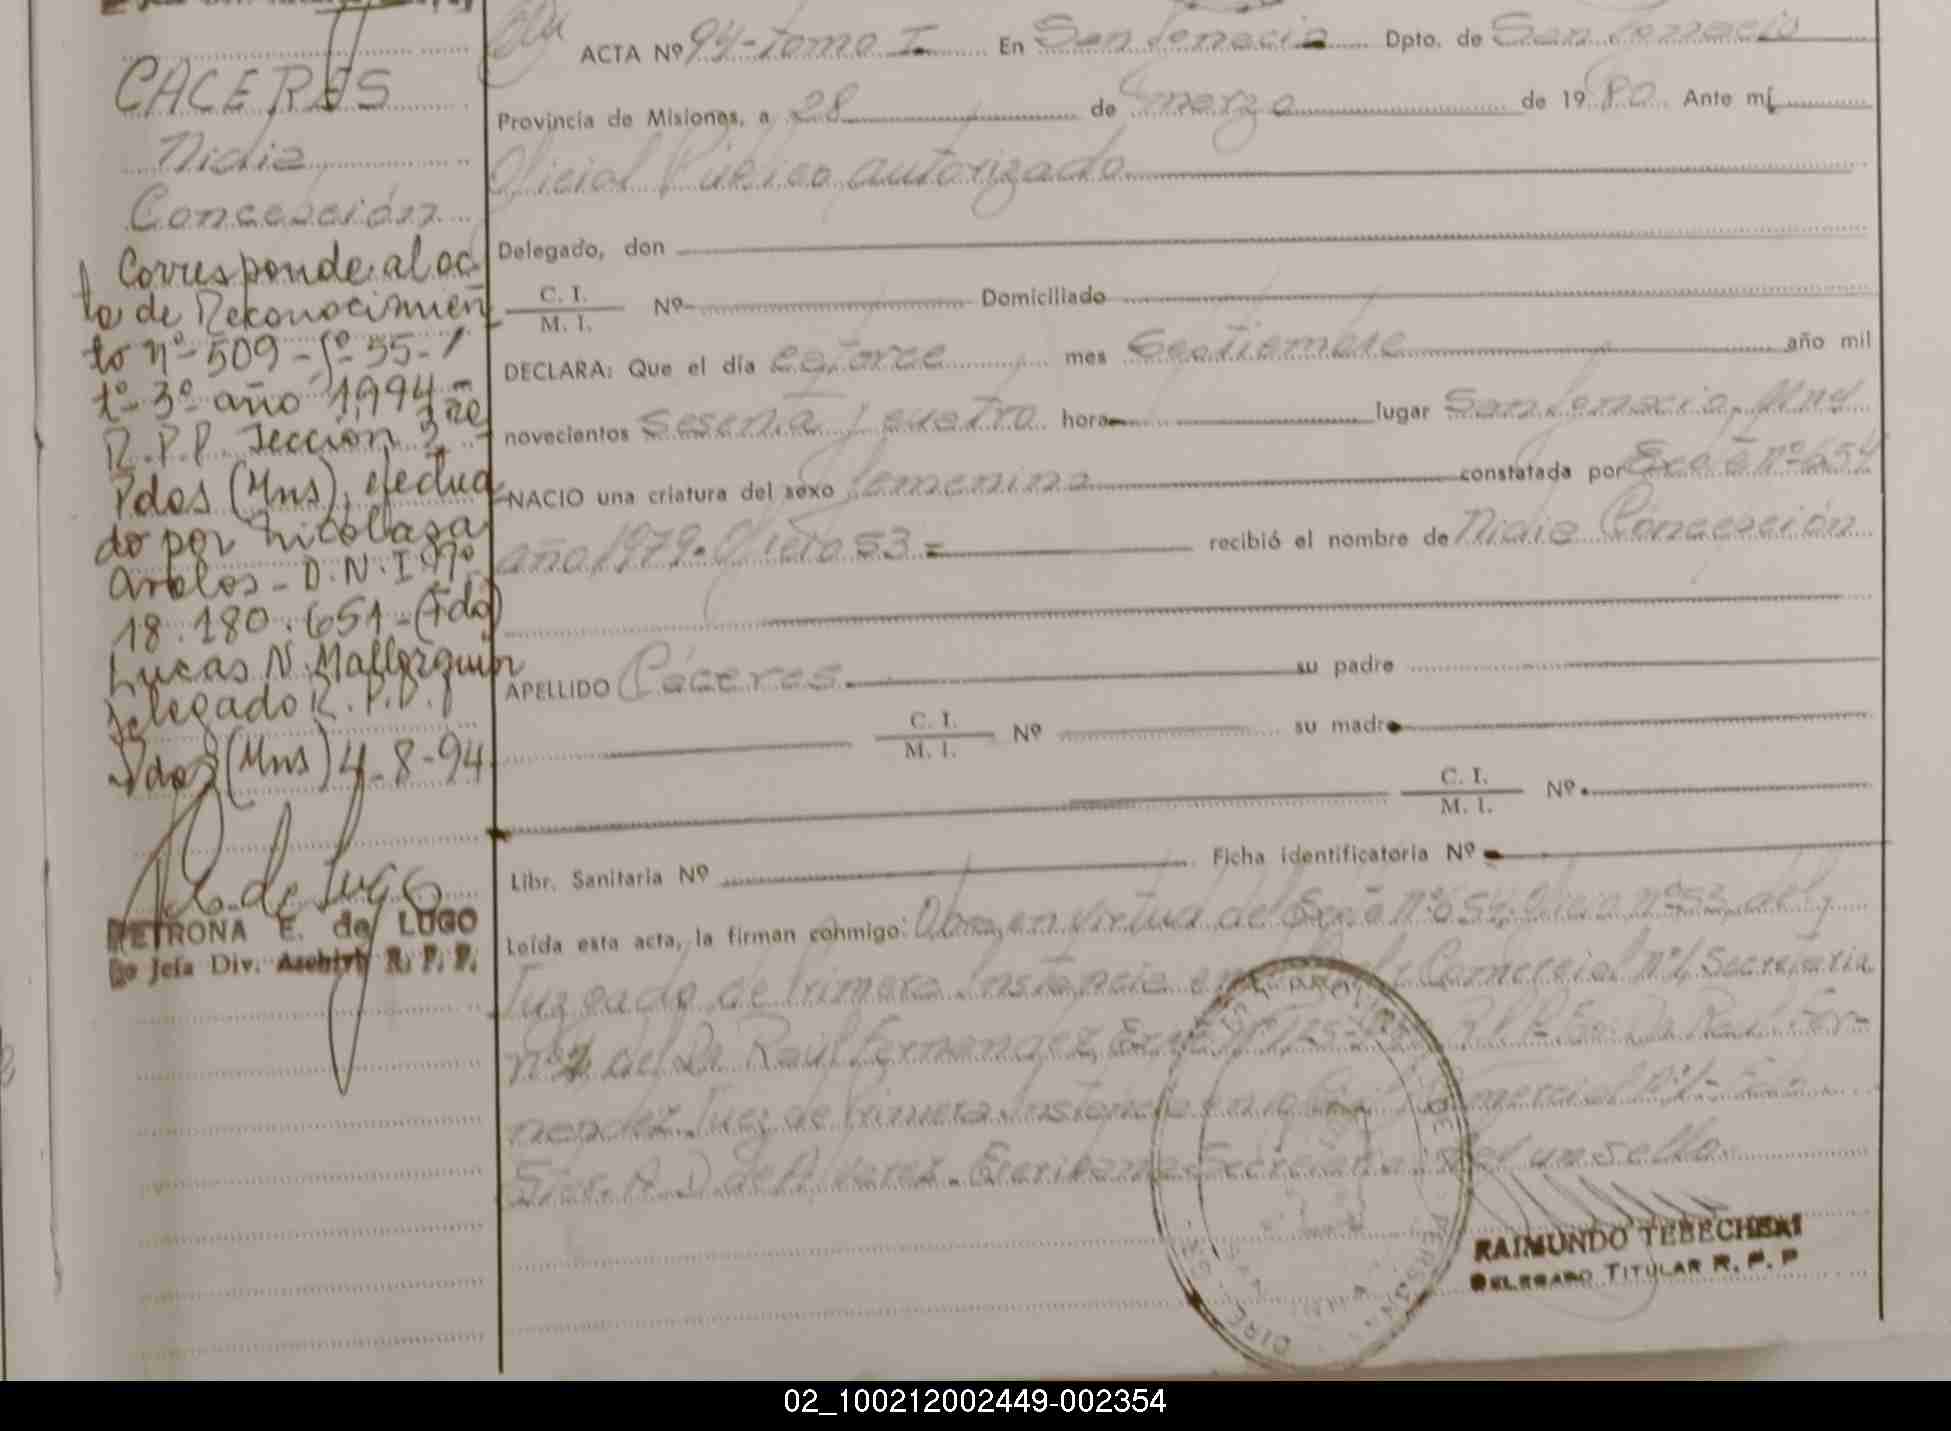 CACERES
Nidia
Concepción
Corresponde al ac
ta de Reconocimien
to nº-509-fº-55-
tº-3º año 1,994-
R.P.P. Sección 3ra
Pdos (Mns), efectua
do por Nicolasa
Avalos - D.N.I Nº
18.180.651-(Fdo)
Lucas N. Mallorquin
Delegado R.P.P.
Pdos (Mns) 4-8-94
P. E. de Lugo
PETRONA E. de LUGO
Jefa Div. Archivo R. P. P.
ACTA Nº 94-tomo I En San Ignacio Dpto. de San Ignacio
Provincia de Misiones, a 28 de marzo de 1980 Ante mí
Oficial Público autorizado
Delegado, don
C. I.
M. I. Nº Domiciliado
DECLARA: Que el día catorce mes Septiembre año mil
novecientos sesenta y cuatro hora lugar San Ignacio, Mnes
NACIO una criatura del sexo femenino constatada por Expte nº 654
año 1979. Oficio 53 = recibió el nombre de Nidia Concepción
APELLIDO Cáceres. su padre
C. I.
M. I. Nº su madre
C. I.
M. I. Nº
Libr. Sanitaria Nº Ficha identificatoria Nº
Leída esta acta, la firman conmigo: Obra en virtud del Expte nº 654 Oficio nº 53 del
Juzgado de Primera Instancia en Comercial nº 1, Secretaria
nº del Dr Raúl Fernandez R.P.P. Dr Raúl Fer-
nandez. Juez de Primera Instancia en lo Comercial nº 1-
A. D de Alvarez. Escribana Secretaria. un sello.
RAIMUNDO TEBECHERI
DELEGADO TITULAR R. P. P
02_100212002449-002354